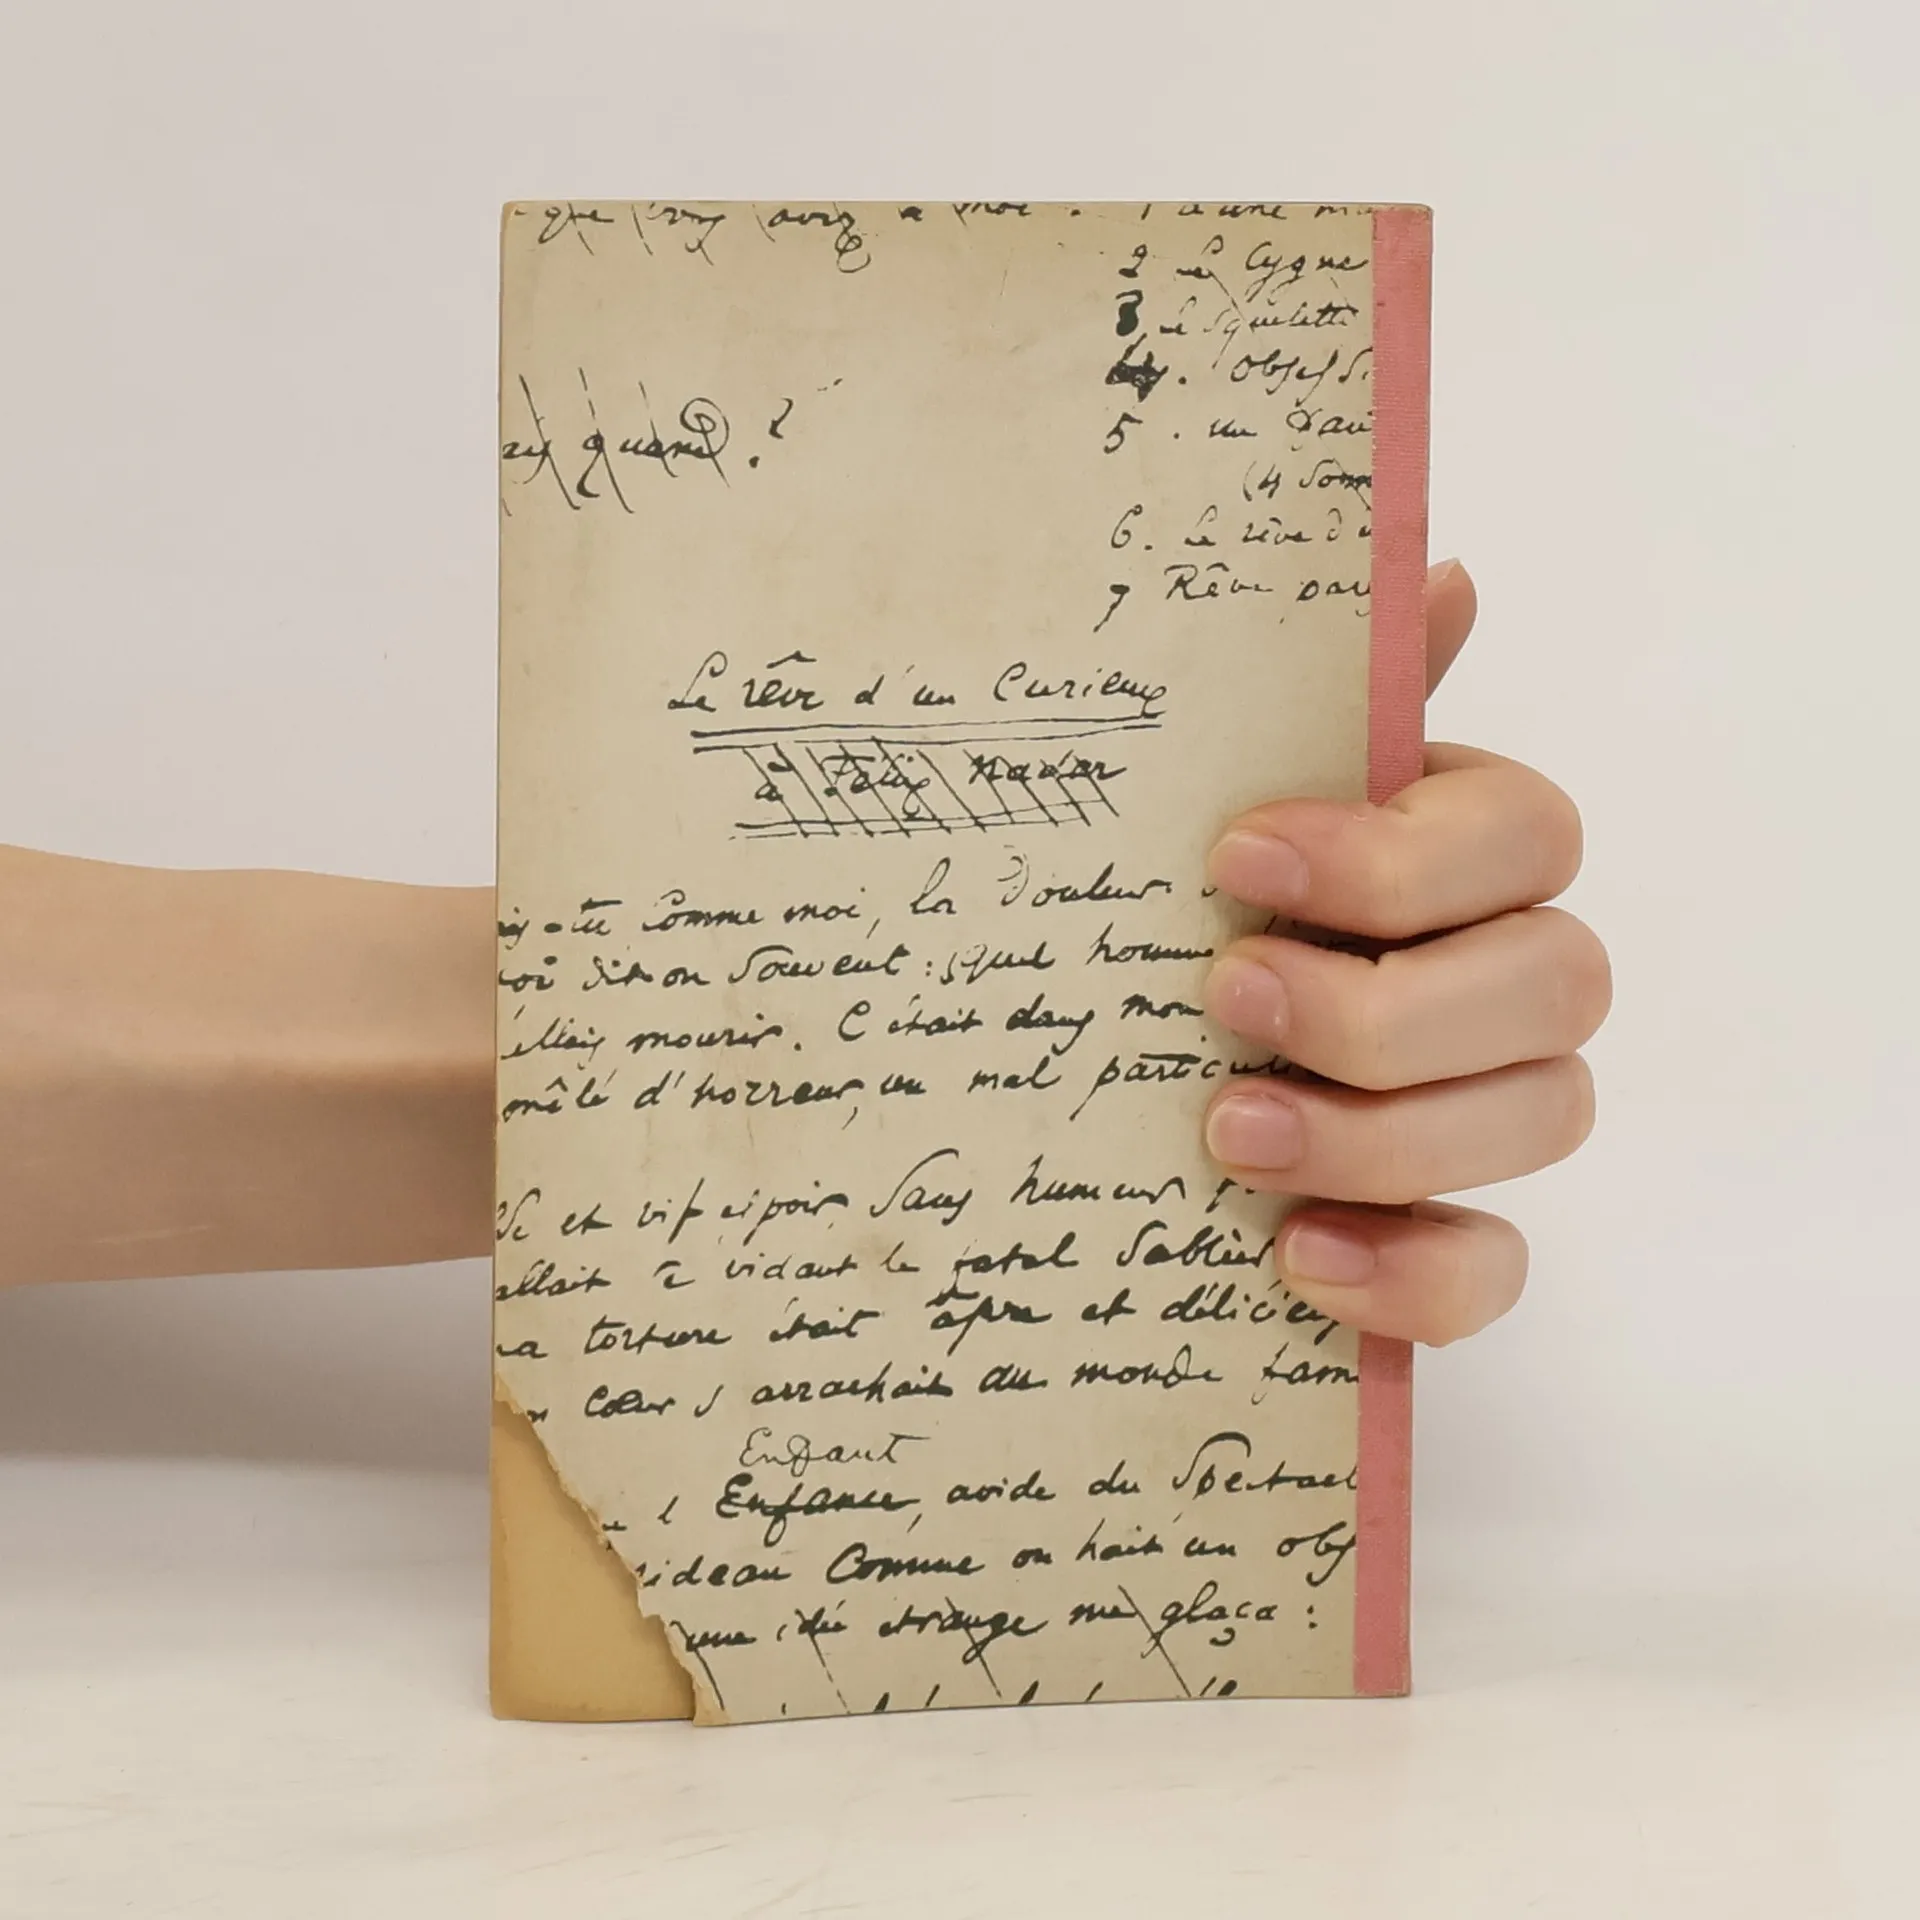 que vous avez à moi. 1 à une
2 Le Cygne
3 Le squelette
4. Obsessi
5. un Fan
(4 Sonn
6. Le rêve d'u
7 Rêve par
quand ?
Le rêve d'un Curieux
à Félix Nadar
is-tu comme moi, la douleur
toi dit on Souvent : Quel homme
'allais mourir. C'était dans mon
mêlé d'horreur, un mal particuli
et vif espoir, Sans humeur
allait se vidant le fatal Sablier
ma torture était âpre et délicieus
n cœur s'arrachait au monde fami
Enfant
e l'Enfance, avide du Spectacl
rideau Comme on hait un obs
une idée étrange me glaça :